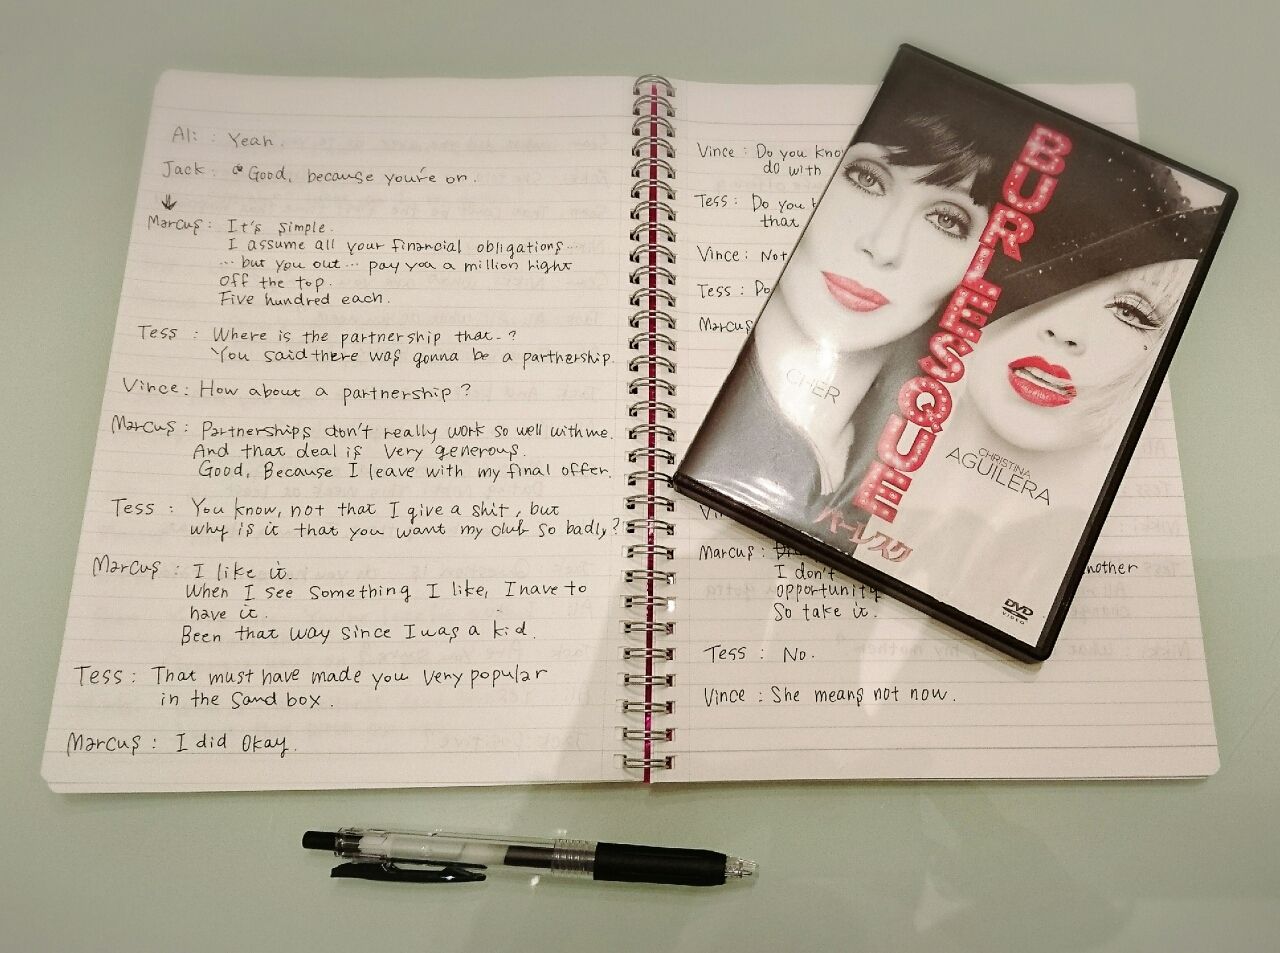 Ali : Yeah.
Jack : Good, because you're on.
Marcus : It's simple.
I assume all your financial obligations...
... but you out ... pay you a million right
off the top.
Five hundred each.
Tess : Where is the partnership that - ?
You said there was gonna be a partnership.
Vince : How about a partnership ?
Marcus : Partnerships don't really work so well with me.
And that deal is very generous.
Good, Because I leave with my final offer.
Tess : You know, not that I give a shit, but
why is it that you want my club so badly ?
Marcus : I like it.
When I see something I like, I have to
have it.
Been that way since I was a kid.
Tess : That must have made you very popular
in the sand box.
Marcus : I did Okay.
Vince : Do you know
do with
Tess : Do you
that
Vince : Not
Tess : Do
Marcus
Marcus :
I don't another
opportunity
So take it.
Tess : No.
Vince : She means not now.
BURLESQUE
CHER
CHRISTINA
AGUILERA
バーレスク
DVD
VIDEO